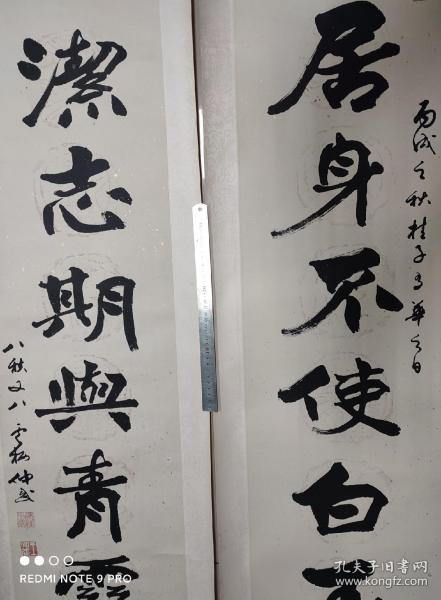 丙戌之秋桂子華之日
居身不使白
潔志期與青雲
八秩又八
REDMI NOTE 9 PRO
孔夫子旧书网
www.kongfz.com